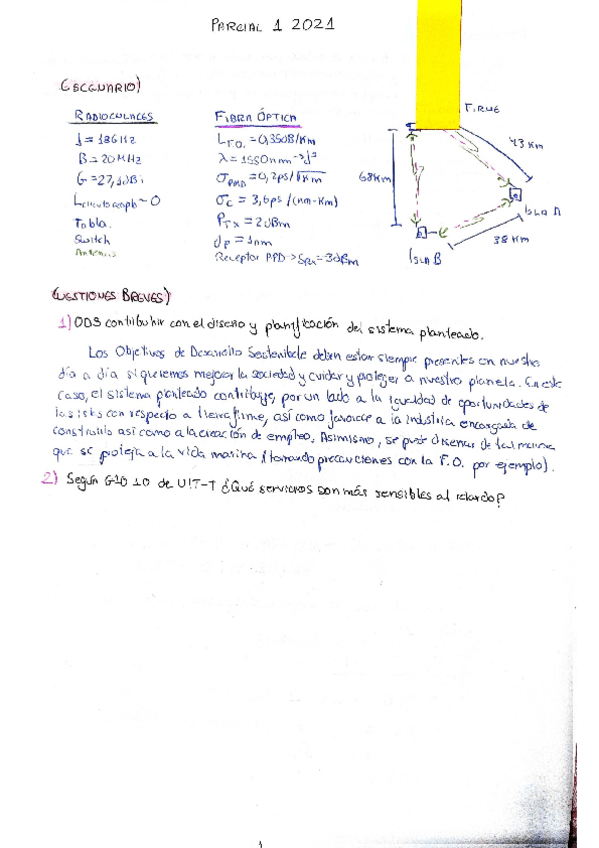 PARCIAL 1 2021
ESCENARIO)
RADIOENLACES
f = 18GHz
B = 20MHz
G = 27,1dBi
~ 0
Tabla.
Switch
Antenas
FIBRA ÓPTICA
L F.O. = 0,35dB/Km
λ = 1550nm
σPMD = 0,2ps/√Km
σC = 3,6ps/(nm·Km)
PTx = 2dBm
1nm
Receptor
T. FIRME
43 Km
68Km
ISLA A
38 Km
ISLA B
CUESTIONES BREVES)
1) ODS contribuhir con el diseño y planificación del sistema planteado.
Los Objetivos de Desarrollo Sostenibele deben estar siempre presentes en nuestro
día a día si queremos mejorar la sociedad y cuidar y proteger a nuestro planeta. En este
caso, el sistema planteado contribuye, por un lado a la igualdad de oportunidades de
las islas con respecto a tierra firme, así como favorece a la industria encargada de
construirlo así como a la creación de empleo. Asimismo, se puede diseñar de tal manera
que se proteja a la vida marina (tomando precauciones con la F.O. por ejemplo).
2) Según G1010 de UIT-T ¿Qué servicios son más sensibles al retardo?
1